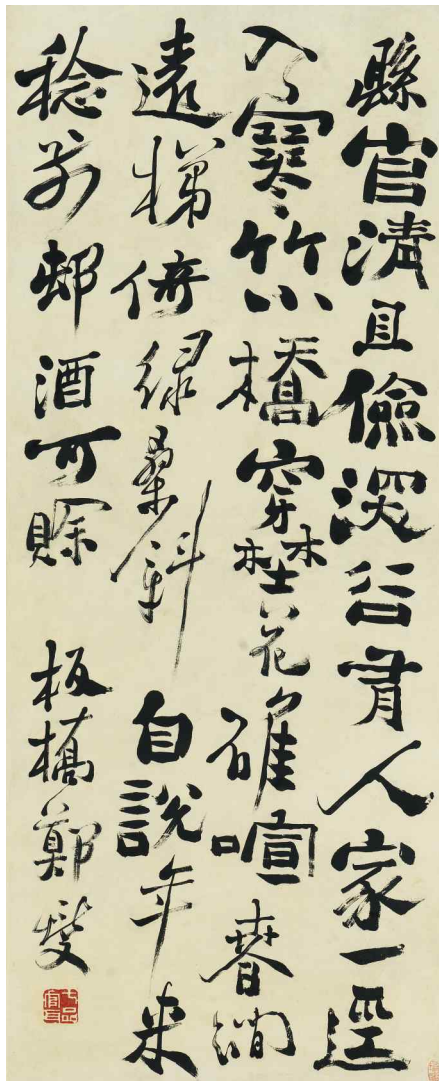 縣官清且儉深谷有人家一逕
入寒竹小橋穿埜花碓喧春澗
遠梯倚綠桑斜自說年來
稔前邨酒可賒
板橋鄭燮
七品官耳